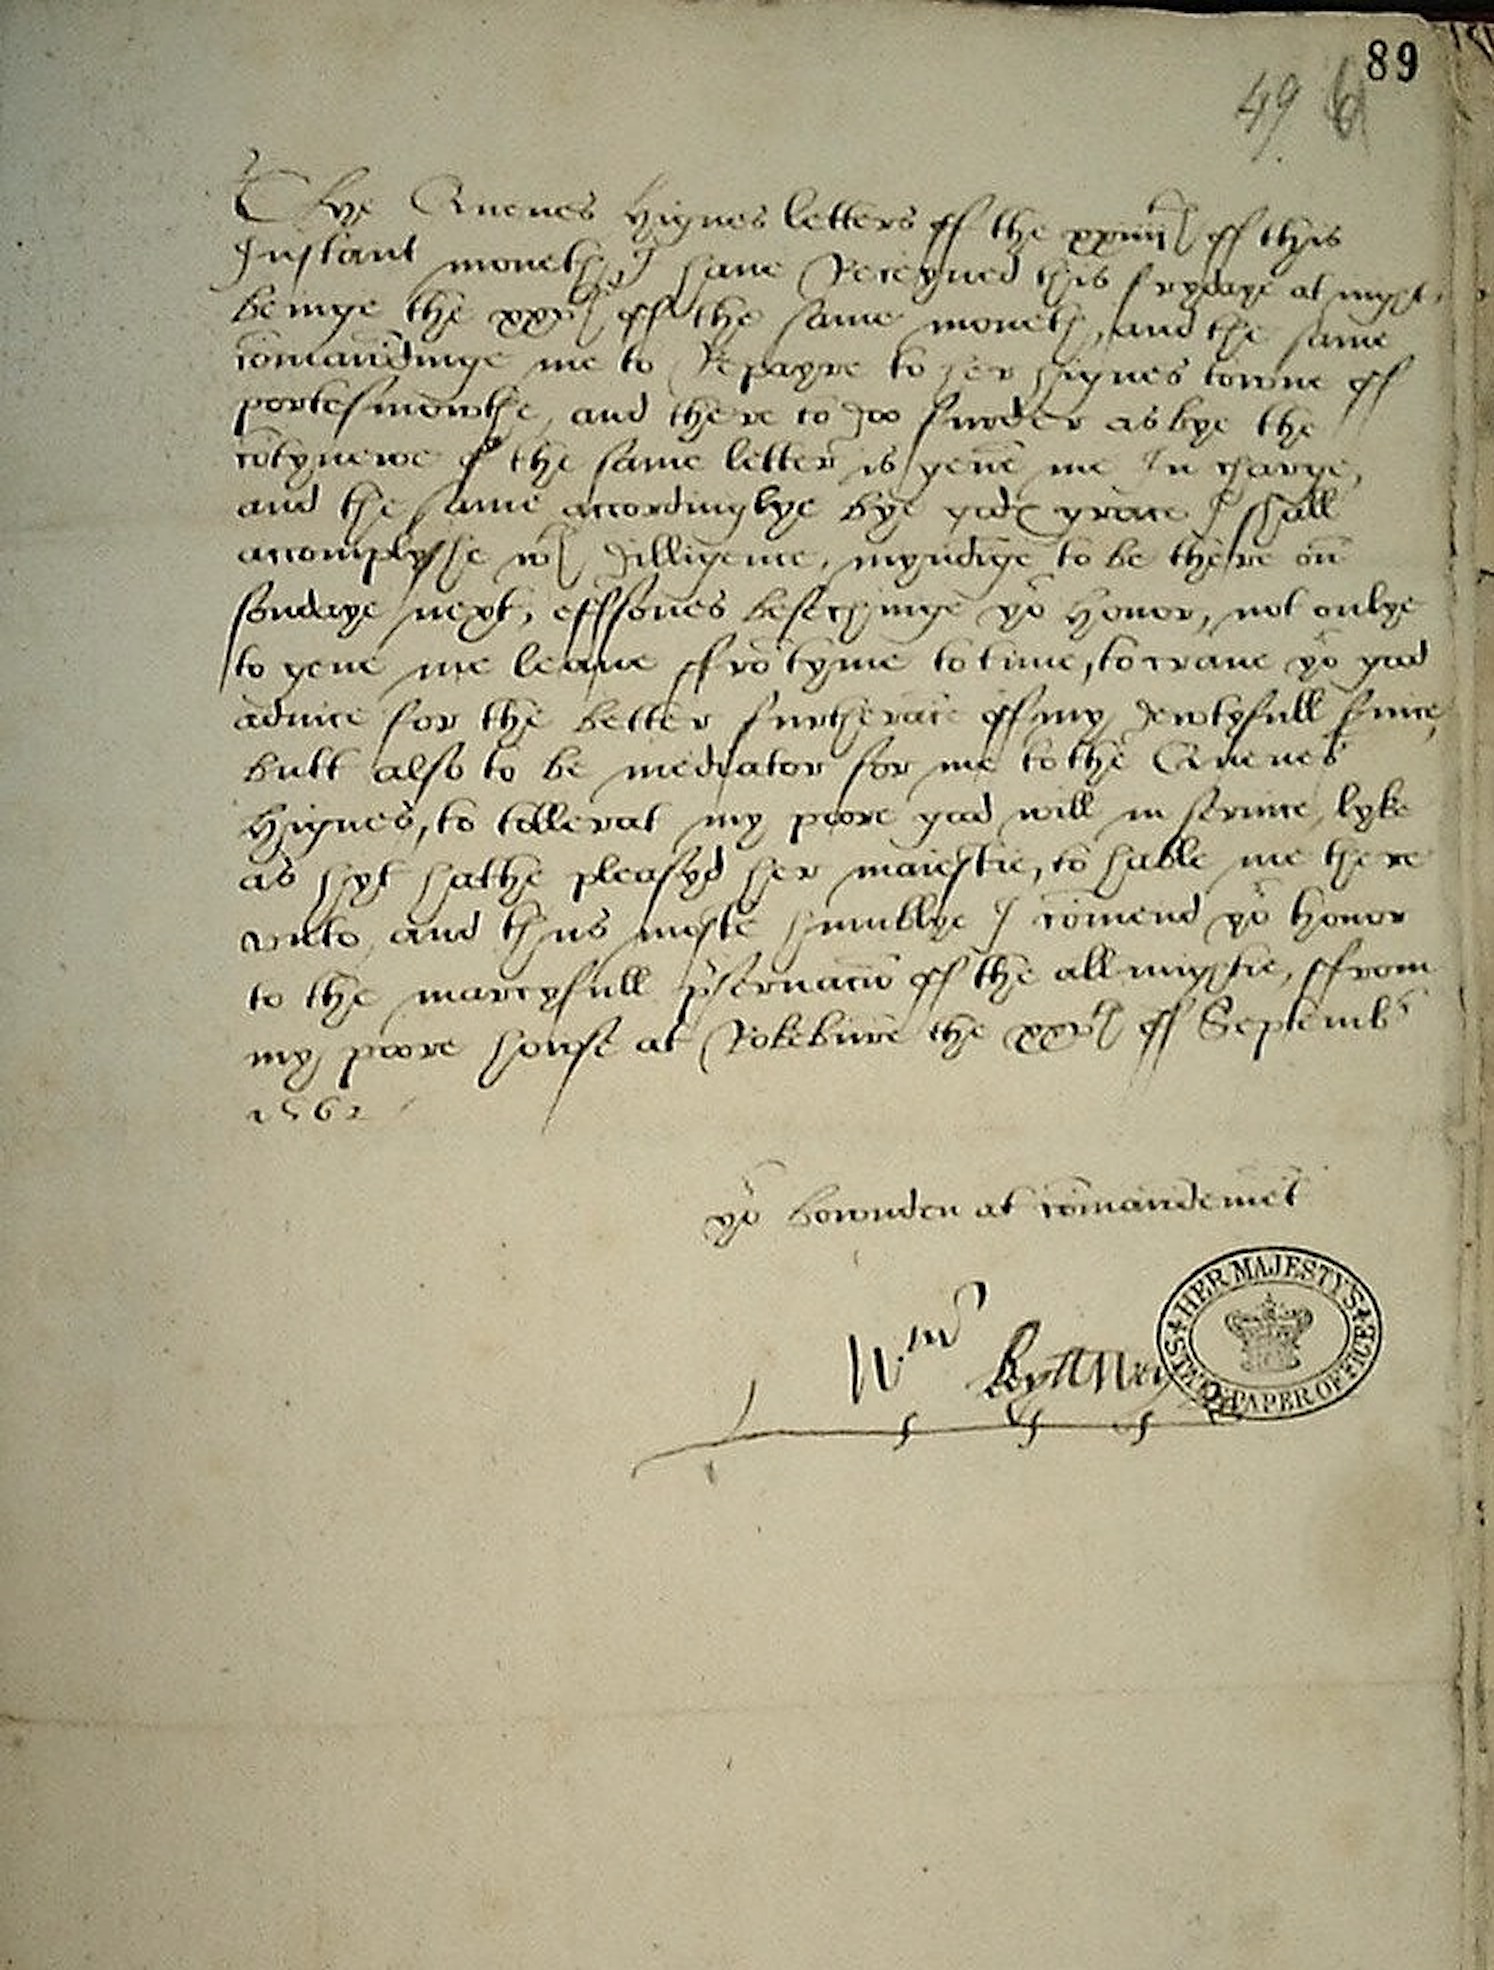 89
49
The Quenes hignes letters off the xxiiijth off this
Instant moneth I haue Receyued this frydaye at nyght
beinge the xxvth off the same moneth, and the same
comandinge me to Repayre to her hignes towne off
portesmowthe, and there to doo as bye the
cotynewe off the same letter is geue me In charge,
and the same accordinglye bye gods grace I shall
accomplyshe wth dilligence, myndige to be there on
sondaye next, eftsones besechinge yor honor, not onlye
to geue me leaue ffro tyme to time, to craue yor good
aduice for the better furtherace off my dewtyfull suice,
butt also to be mediator for me to the Quenes
Hignes, to tollerat my poore good will in seruice, lyke
as hyt hathe pleasyd her maiestie, to hable me there
vnto, and thus moste humblye I comend yor honor
to the marcyfull pseruacio off the all myghtie, ffrom
my poore house at Rokburne the xxvth off Septembr
1562
yor bownden at comandemet
Wm Kyllwey
HER MAJESTY'S STATE PAPER OFFICE